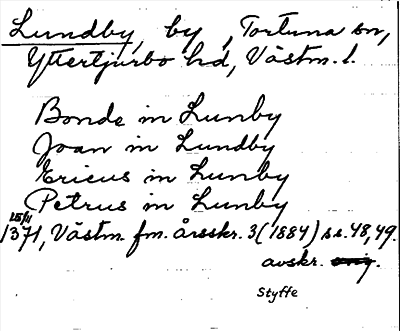 Lundby, by, Tortuna sn,
Yttertjurbo hd, Västm. l.
Bonde in Lunby
Joan in Lundby
Ericus in Lunby
Petrus in Lunby
15/11
1371, Västm. fm. årsskr. 3 (1884) s.s. 48, 49.
avskr. orig.
Styffe